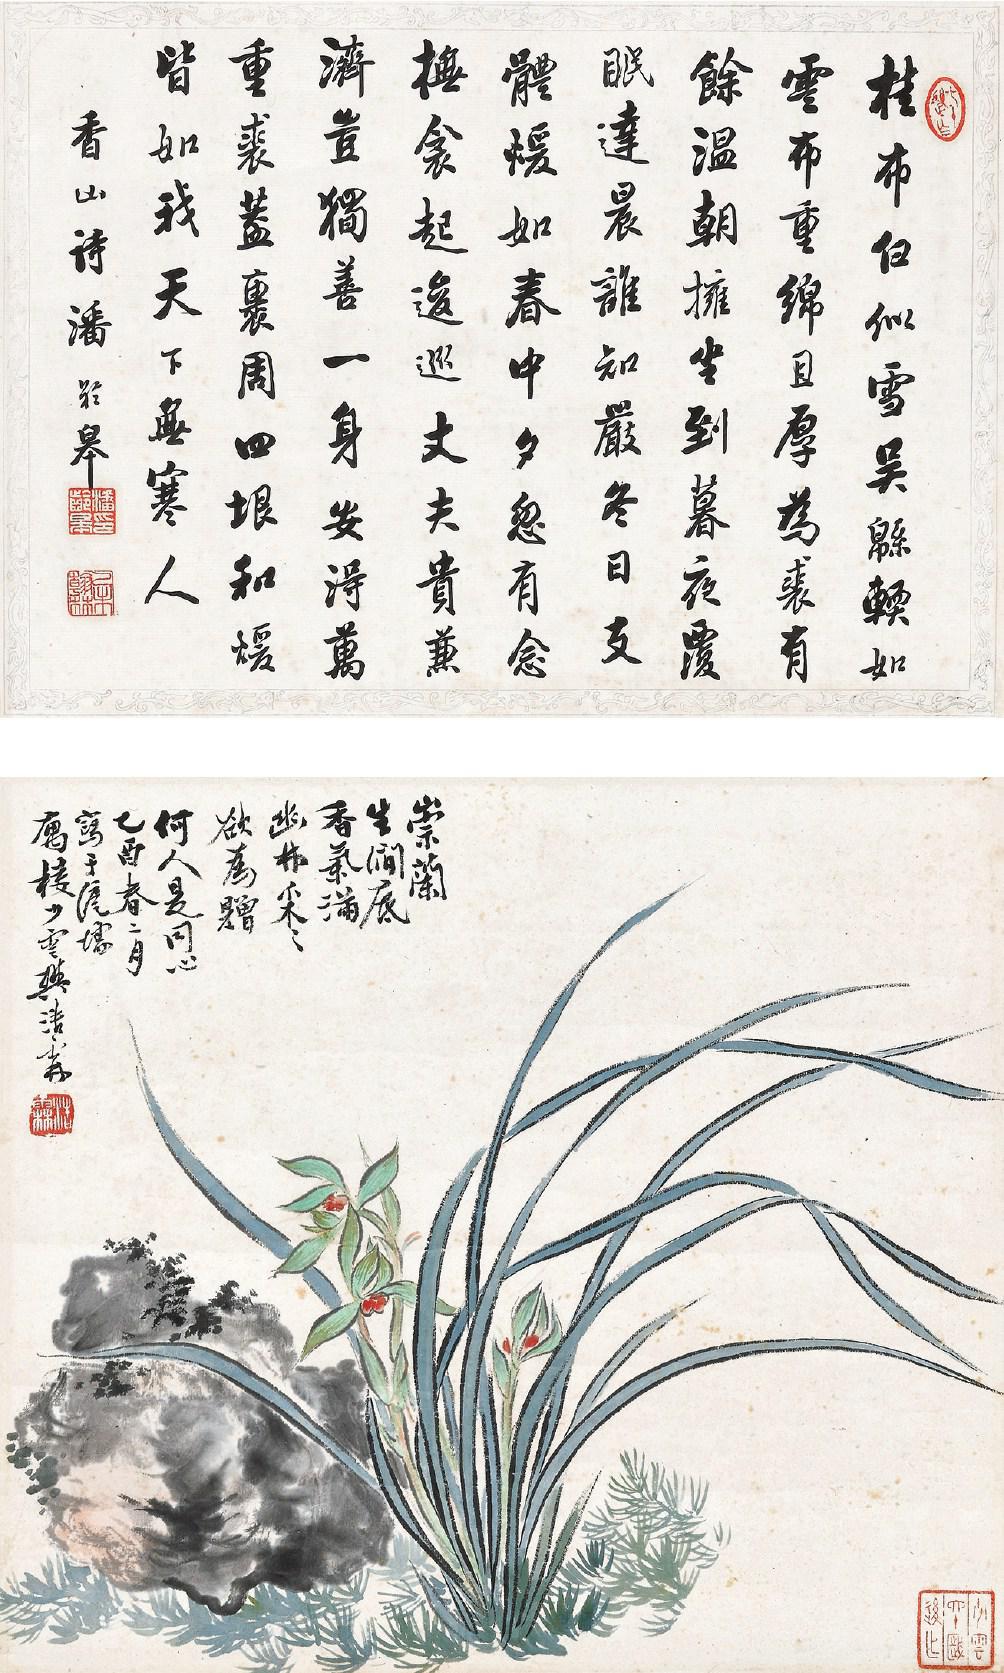 桂布白似雪吴緜輭如
雲布重綿且厚為裘有
餘溫朝擁坐到暮夜覆
眠達晨誰知嚴冬日支
體煖如春中夕忽有念
撫衾起逡巡丈夫貴兼
濟豈獨善一身安得萬
重裘蓋裹周四垠和煖
皆如我天下無寒人
香山詩潘齡皋
崇蘭
生澗底
香氣滿
幽林采之
欲為贈
何人是同心
乙酉春二月
寫于滬壖
寓樓少雲樊浩霖